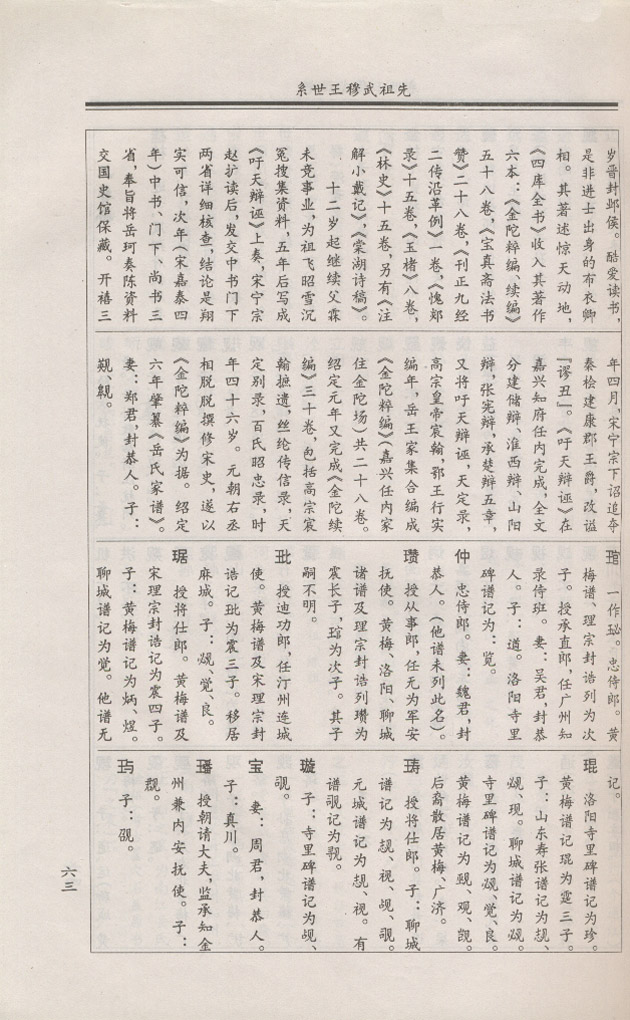 系世王穆武祖先
岁晋封邺侯。酷爱读书，
是非进士出身的布衣卿
相。其著述惊天动地，
《四库全书》收入其著作
六本：《金陀粹编、续编》
五十八卷，《宝真斋法书
赞》二十八卷，《刊正九经
三传沿革例》一卷，《愧郯
录》十五卷，《玉楮》八卷，
《林史》十五卷，另有《注
解小戴记》，《棠湖诗稿》。
十二岁起继续父霖
未竟事业，为祖飞昭雪沉
冤搜集资料，五年后写成
《吁天辩诬》上奏，宋宁宗
赵扩读后，发交中书门下
两省详细核查，结论是翔
实可信，次年（宋嘉泰四
年）中书、门下、尚书三
省，奉旨将岳珂奏陈资料
交国史馆保藏。开禧三
年四月，宋宁宗下诏追夺
秦桧建康郡王爵，改谥
『谬丑』。《吁天辩诬》在
嘉兴知府任内完成，全文
分建储辩、淮西辩、山阳
辩，张宪辩，承楚辩五章，
又将吁天辩诬，天定录，
高宗皇帝宸翰，鄂王行实
编年，岳王家集合编成
《金陀粹编》（嘉兴任内家
住金陀场）共二十八卷。
绍定元年又完成《金陀续
编》三十卷，包括高宗宸
翰摭遗，丝纶传信录，天
定别录，百氏昭忠录，时
年四十六岁。元朝右丞
相脱脱撰修宋史，遂以
《金陀粹编》为据。绍定
六年肇纂《岳氏家谱》。
妻：郑君，封恭人。子：
觌、
一作珌。忠侍郎。黄
梅谱、理宗封诰列为次
子。授承直郎，任广州知
录侍班。妻：吴君，封恭
人。子：道。洛阳寺里
碑谱记为：览。
仲 忠侍郎。妻：魏君，封
恭人。（他谱未列此名）。
瓒 授从事郎，任无为军安
抚使。黄梅、洛阳、聊城
诸谱及理宗封诰列瓒为
震长子，琯为次子。其子
嗣不明。
玭 授迪功郎，任汀州连城
使。黄梅谱及宋理宗封
诰记玭为震三子。移居
麻城。子：觉、良。
琚 授将仕郎。黄梅谱及
宋理宗封诰记为震四子。
子：黄梅谱记为炳、煜。
聊城谱记为觉。他谱无
记。
琨 洛阳寺里碑谱记为珍。
黄梅谱记琨为霆三子。
子：山东寿张谱记为
现。聊城谱记为
寺里碑谱记为觉、良。
黄梅谱记为观、
后裔散居黄梅、广济。
𤩽 授将仕郎。子：聊城
谱记为视、
元城谱记为视。有
谱觇记为
璇 子：寺里碑谱记为岘、
觇。
宝 妻：周君，封恭人。
子：真川。
璠 授朝请大夫，监承知金
州兼内安抚使。子：
玙 子：
六三